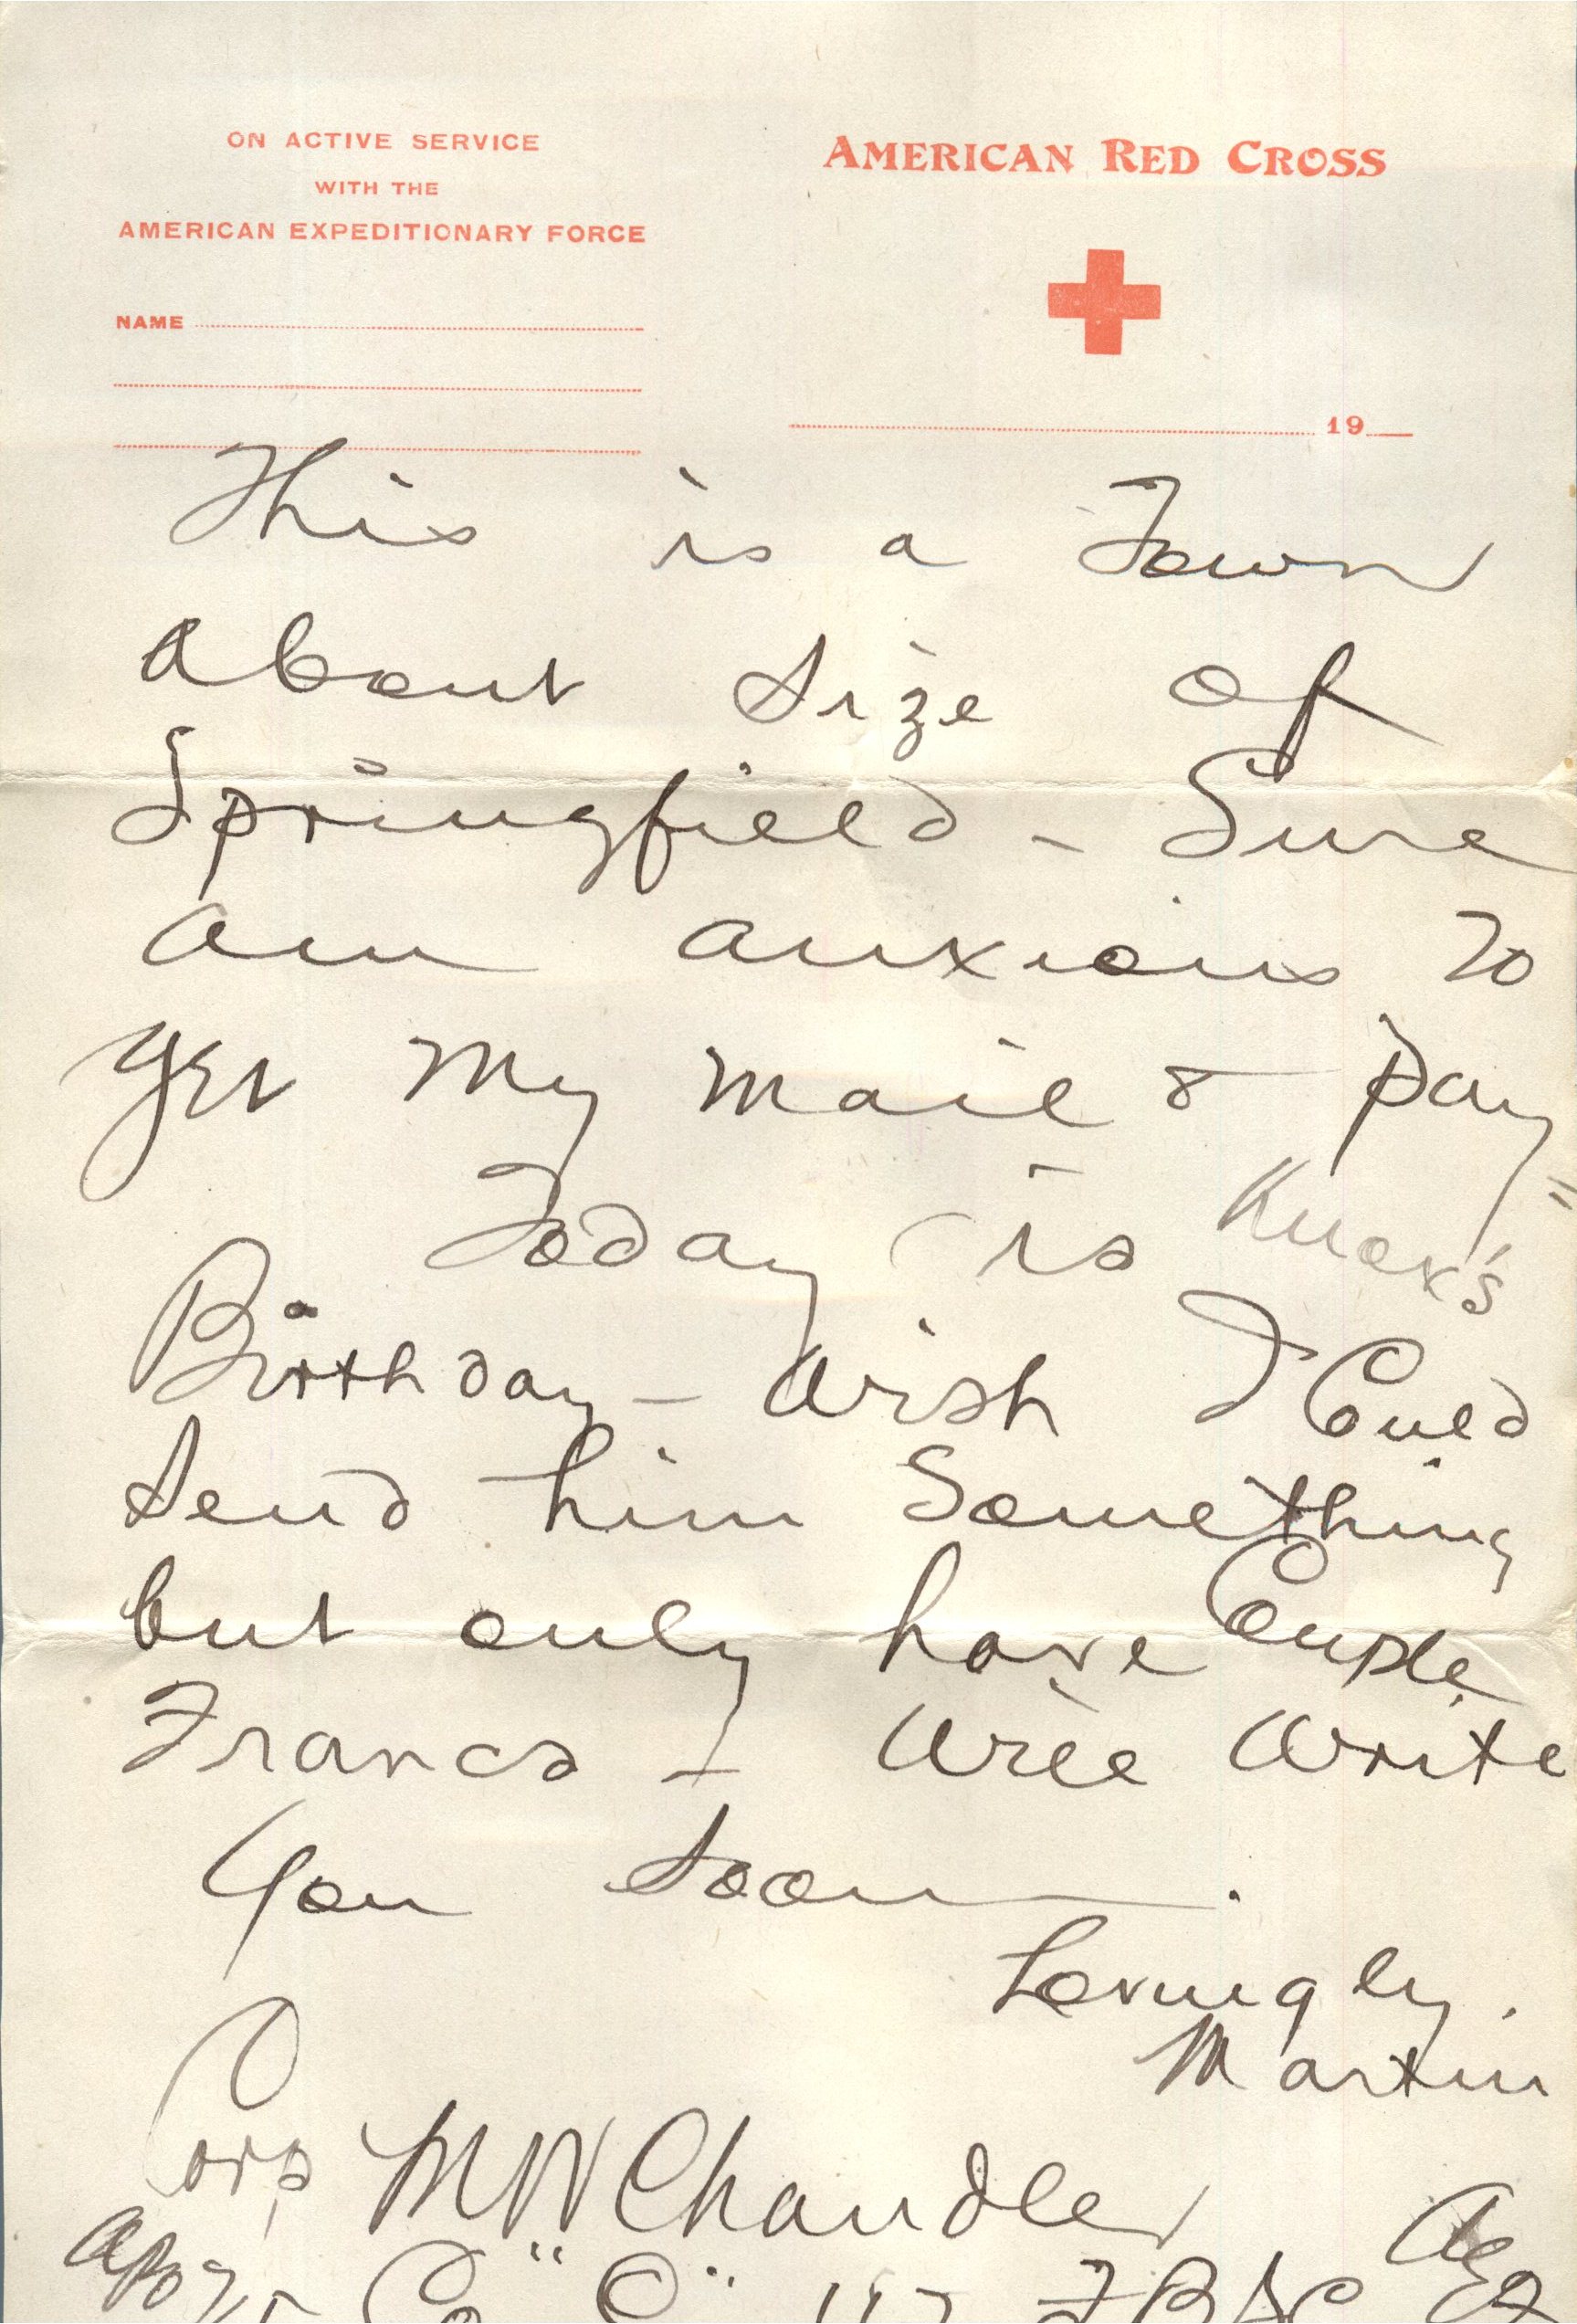 ON ACTIVE SERVICE
WITH THE
AMERICAN EXPEDITIONARY FORCE
NAME
AMERICAN RED CROSS
19
This is a Town
about size of
Springfield - Sure
am anxious to
get my mail & pay =
Today is Knox's
Birthday - Wish I Could
send him Something
but only have Couple
Francs - Will Write
You soon.
Lovingly.
Martin
Corp M W Chandler
APO Co "C" 117 F.B.